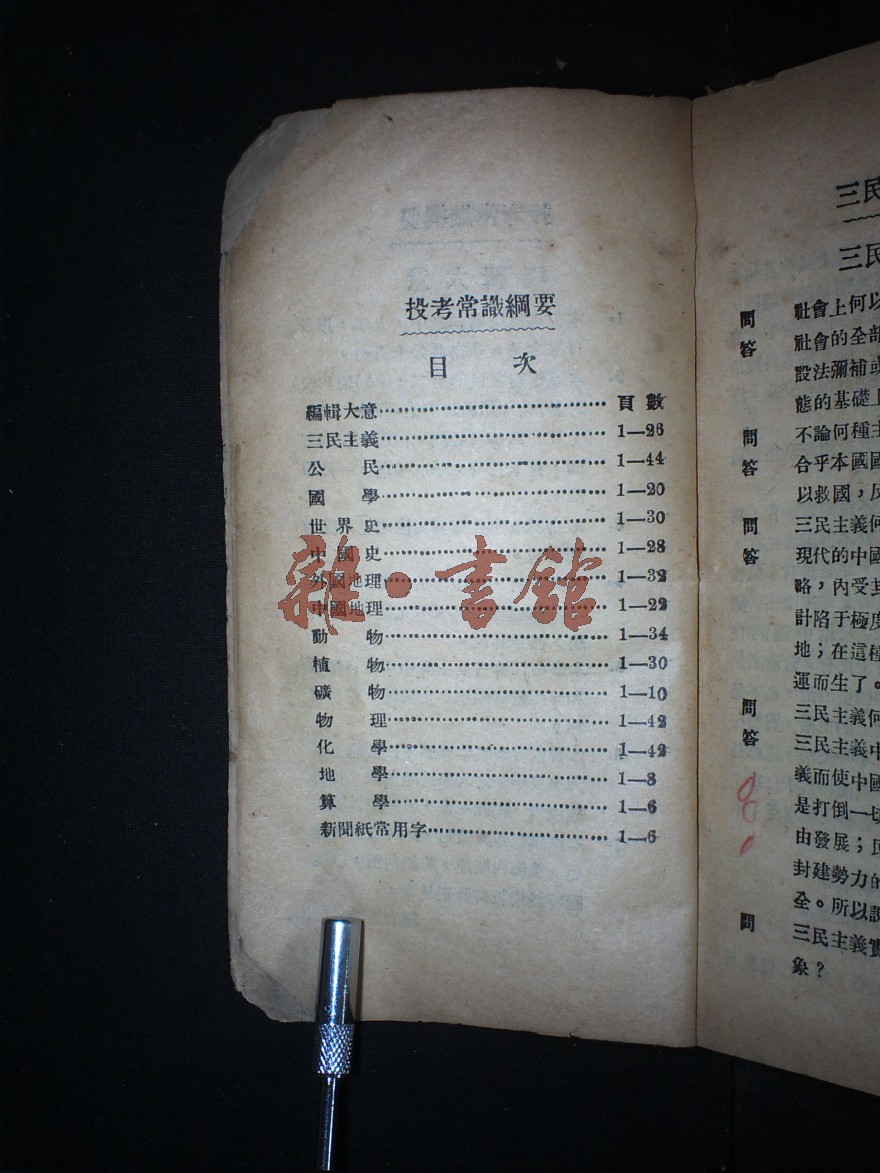 投考常識綱要
目 次
編輯大意……頁數
三民主義……1—26
公 民……1—44
國 學……1—20
世界史……1—30
中國史……1—28
外國地理……1—32
中國地理……1—22
動 物……1—34
植 物……1—30
礦 物……1—10
物 理……1—42
化 學……1—42
地 學……1—8
算 學……1—6
新聞紙常用字……1—6
雜·書館
三民
三民
問 社會上何以
答 社會的全部
設法彌補或
態的基礎上
問 不論何種主
答 合乎本國國
以救國，反
問 三民主義何
答 現代的中國
略，內受封
計陷于極度
地；在這種
運而生了。
問 三民主義何
答 三民主義中
義而使中國
是打倒一切
由發展；民
封建勢力的
全。所以說
問 三民主義實
象？